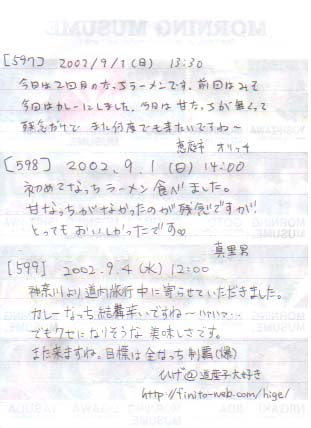 MORNING MUSUME
[597] 2002/9/1(日) 13:30
今日は2回目のなっちラーメンです。前回はみそ
今回はカレーにしました。今日は甘なっちが無くって
残念だけど また何度でも来たいですね〜
恵庭市 オリッチ
[598] 2002.9.1(日)14:00
初めてなっちラーメン食べました。
甘なっちがなかったのが残念ですが、
とってもおいしかったです
真里男
[599] 2002.9.4(水)12:00
神奈川より道内旅行中に寄らせていただきました。
カレーなっち結構辛いですね〜
でもクセになりそうな美味しさです。
また来ますね。目標は全なっち制覇(爆)
ひげ@道産子大好き
http://finito-web.com/hige/